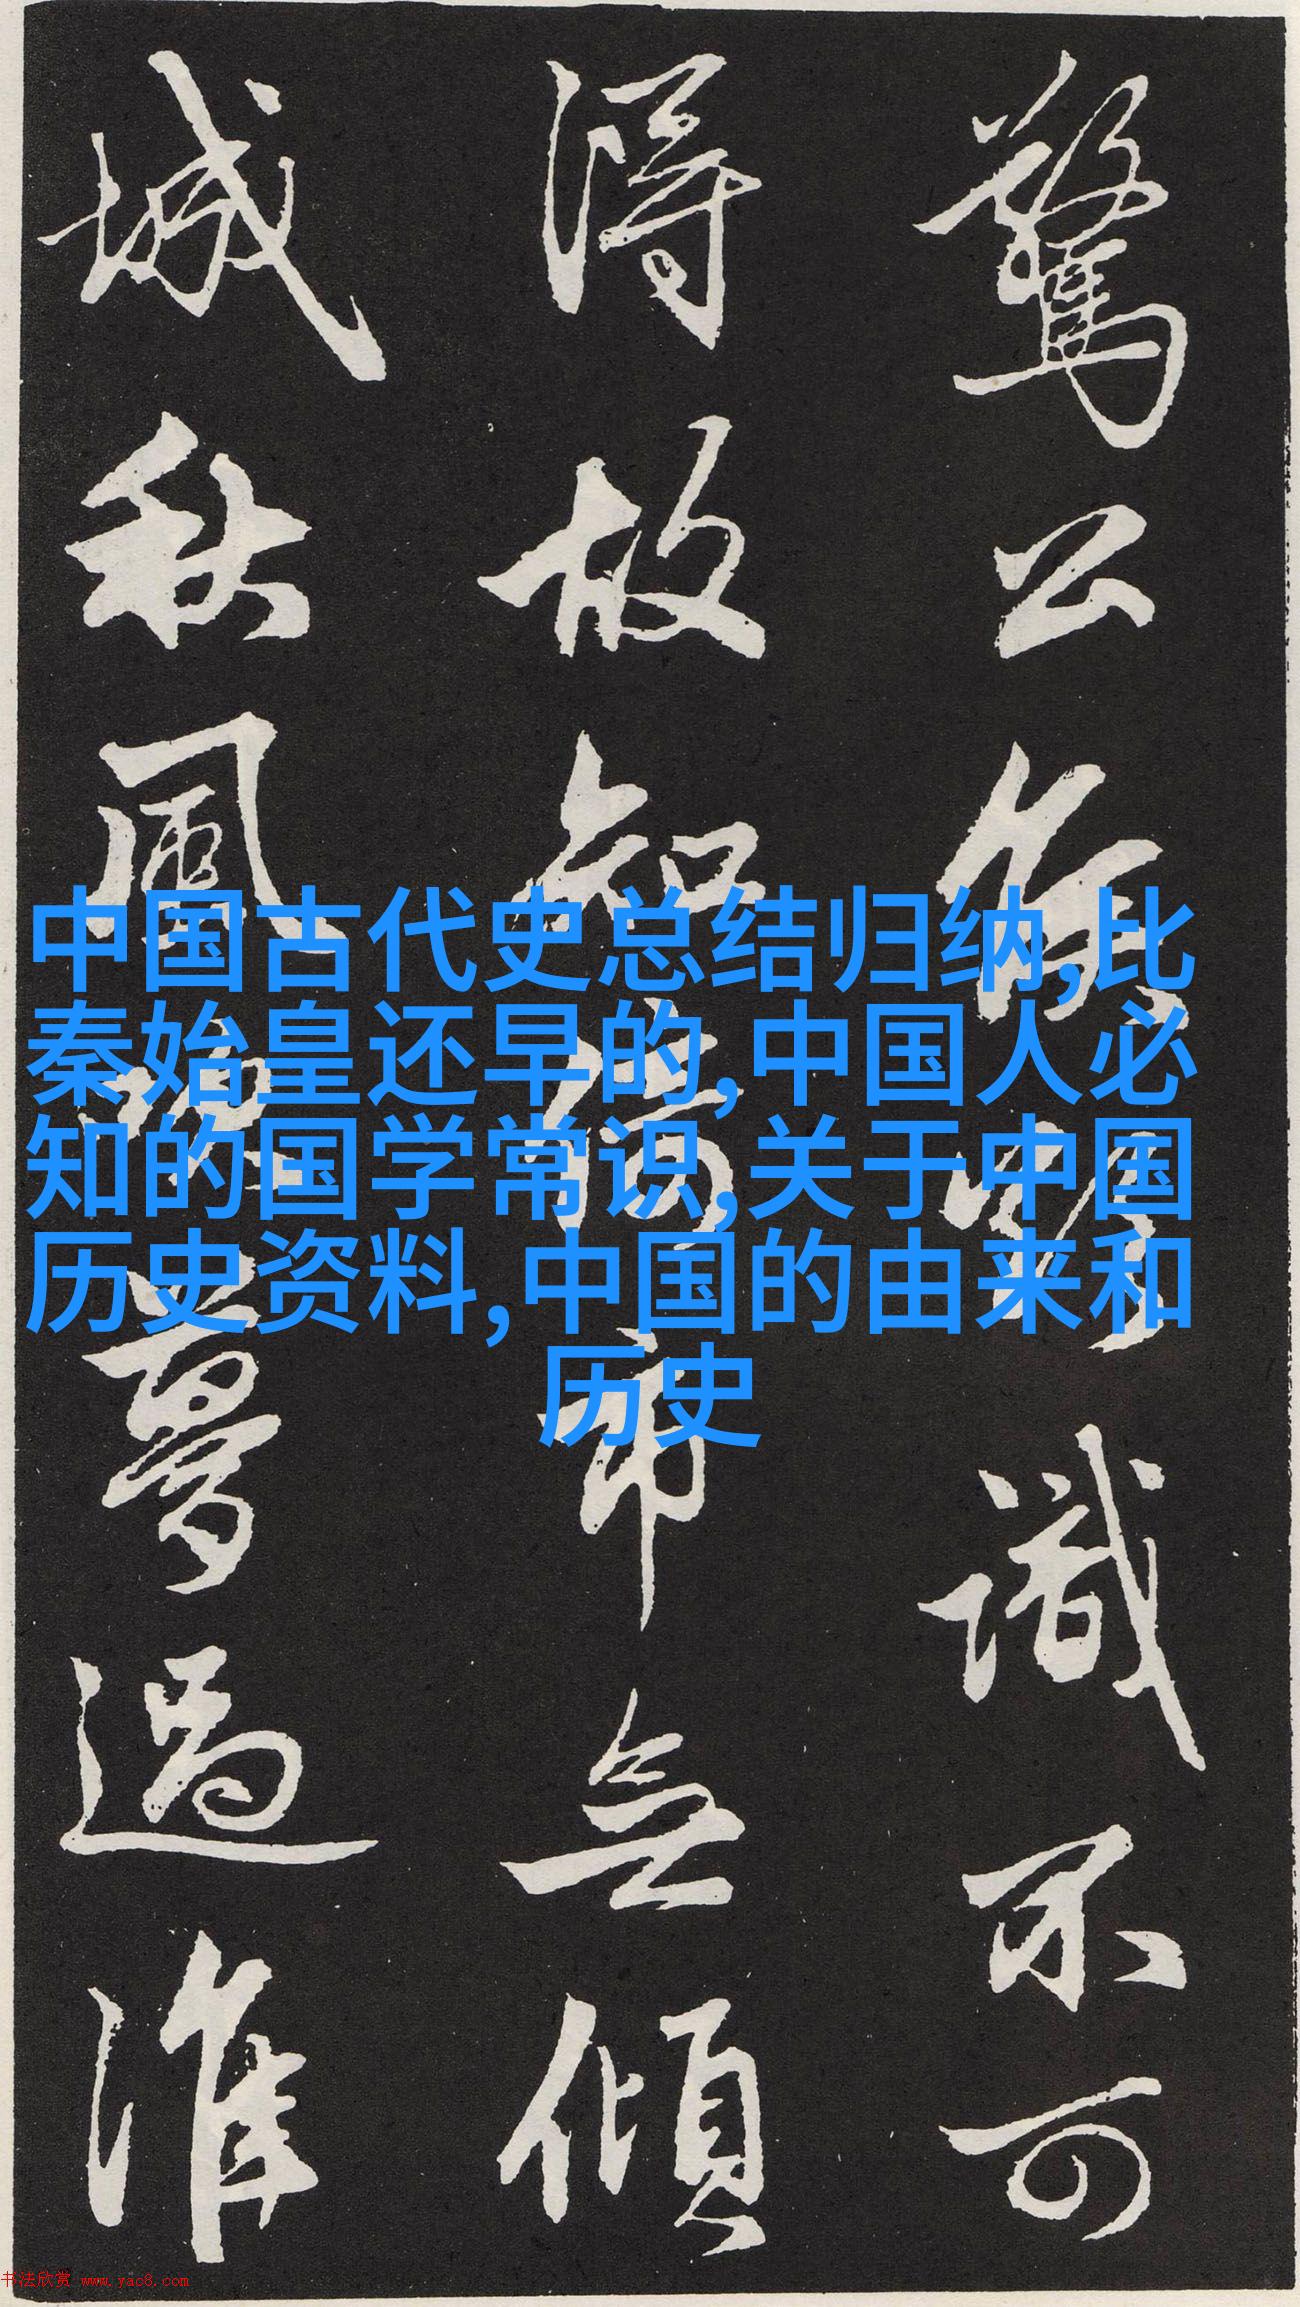 驚公識不可
得故知倚市無傾
城秋風夢過淮
中国古代史总结归纳,比
秦始皇还早的,中国人必
知的国学常识,关于中国
历史资料,中国的由来和
历史
书法欣赏 www.yac8.com